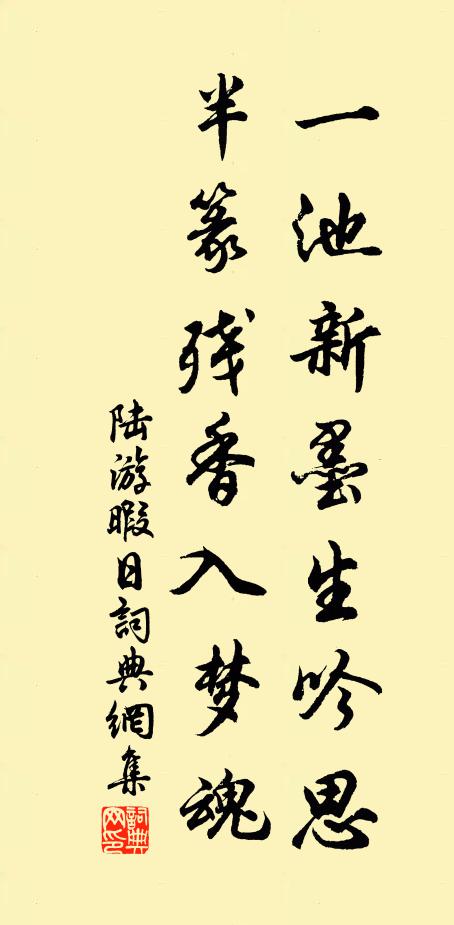 一池新墨生吟思
半篆残香入梦魂
陆游暇日詞典網集
詞典网印